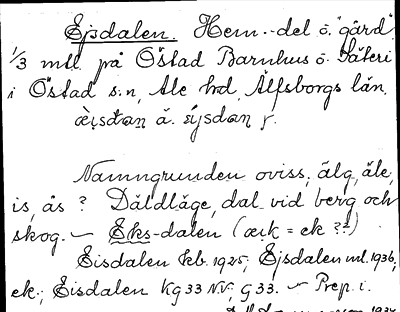 Ejsdalen. Hem.-del ö. "gård"
1/3 mtl på Östad Barnhus ö. Säteri
i Östad s:n, Ale hd, Älfsborgs län.
æi̯sdan ă. sýsdan r.
Namngrunden oviss; älg, äle,
is, ås? Däldläge, dal vid berg och
skog. ~ Eks-dalen (æik = ek ??)
Eisdalen kb. 1925; Ejsdalen ml. 1936,
ek.; Eisdalen Kg 33 N.V.; G 33. ~ Prep. i.